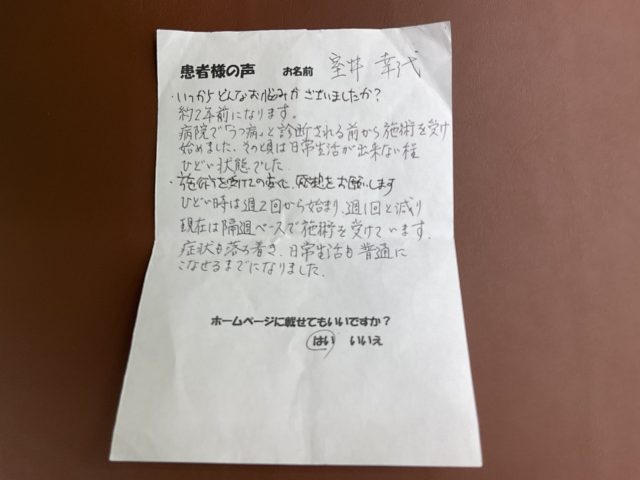 患者様の声 お名前 室井 幸代
・いつからどんなお悩みがございましたか?
約2年前になります。
病院で「うつ病」と診断される前から施術を受け
始めました。その頃は日常生活が出来ない程
ひどい状態でした。
・施術を受けての変化、感想をお願いします
ひどい時は週2回から始まり、週1回と減り
現在は隔週ペースで施術を受けています。
症状も落ち着き、日常生活も普通に
こなせるまでになりました。
ホームページに載せてもいいですか?
はい いいえ